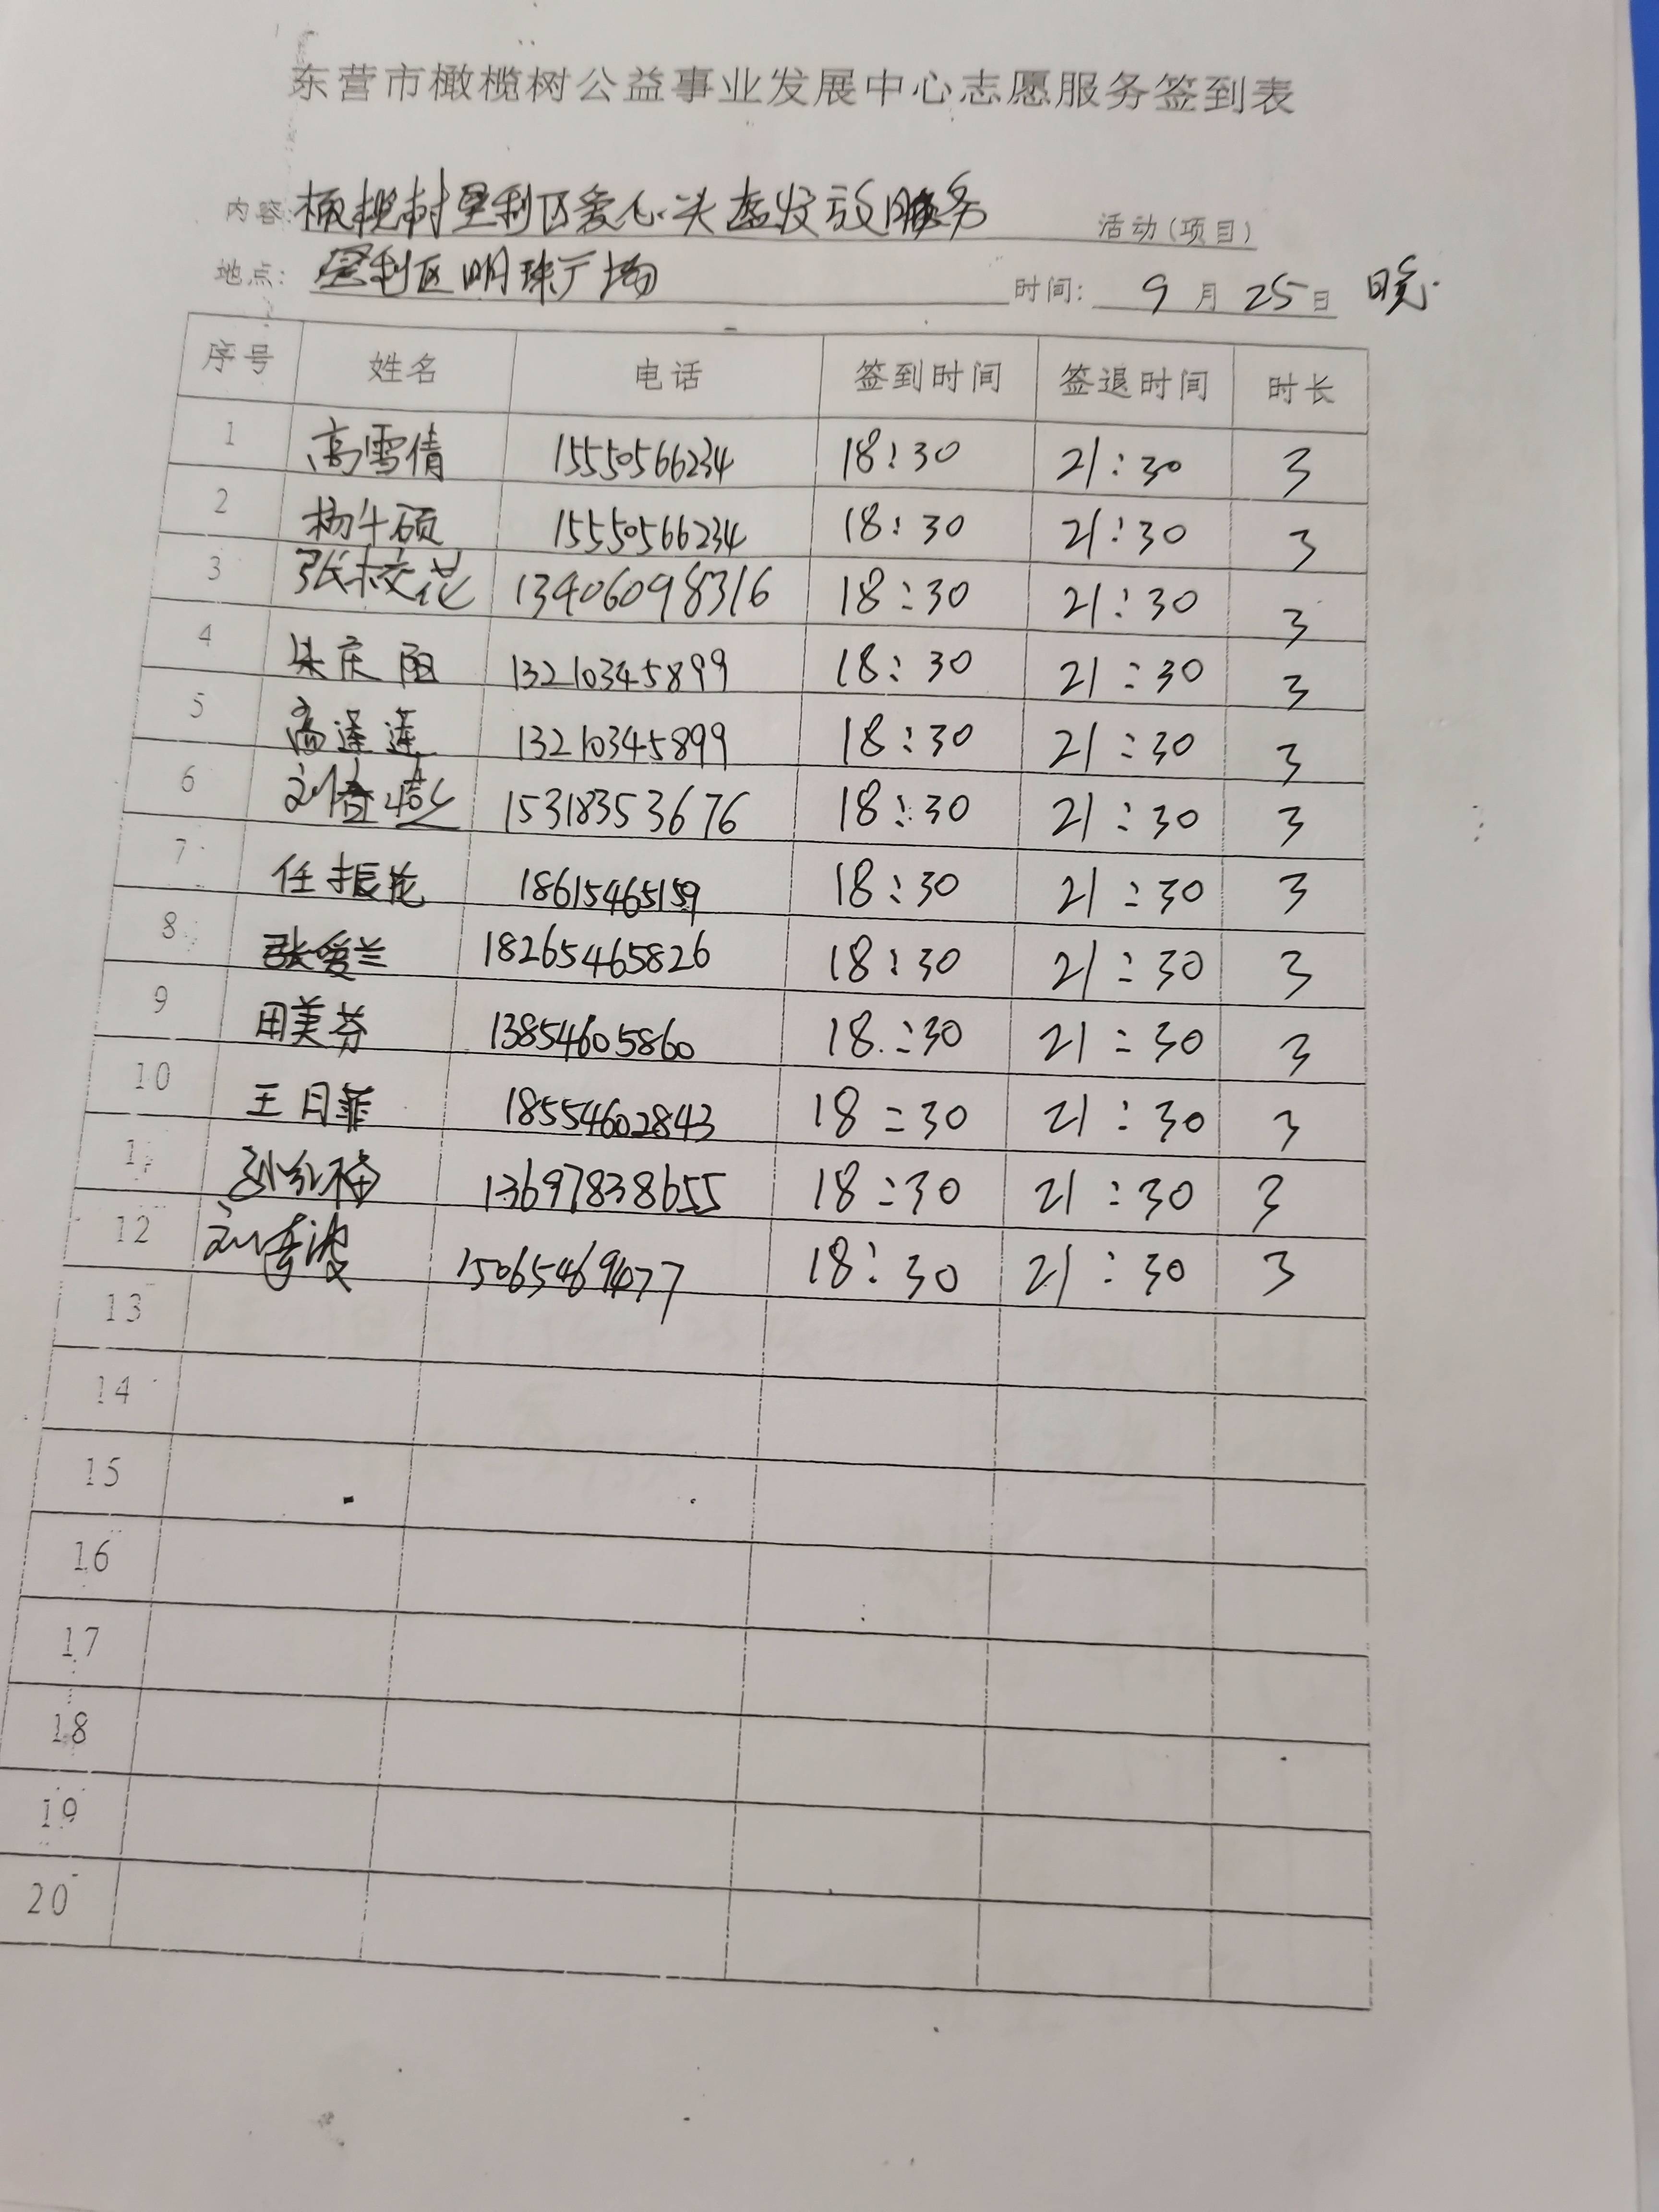 东营市橄榄树公益事业发展中心志愿服务签到表
内容: 橄榄树垦利区爱心头盔发放服务 活动(项目)
地点: 垦利区明珠广场 时间: 9月25日 晚
序号 姓名 电话 签到时间 签退时间 时长
1 高雪倩 15550566234 18:30 21:30 3
2 杨牛硕 15550566234 18:30 21:30 3
3 张校花 13406098316 18:30 21:30 3
4 庆阳 13210345899 18:30 21:30 3
5 高莲莲 13210345899 18:30 21:30 3
6 刘 15318353676 18:30 21:30 3
7 任振花 18615465159 18:30 21:30 3
8 张爱兰 18265465826 18:30 21:30 3
9 田美芬 13854605860 18:30 21:30 3
10 王月菲 18554602843 18:30 21:30 3
11 孙红梅 13697838655 18:30 21:30 3
12 刘春波 15065469477 18:30 21:30 3
13
14
15
16
17
18
19
20